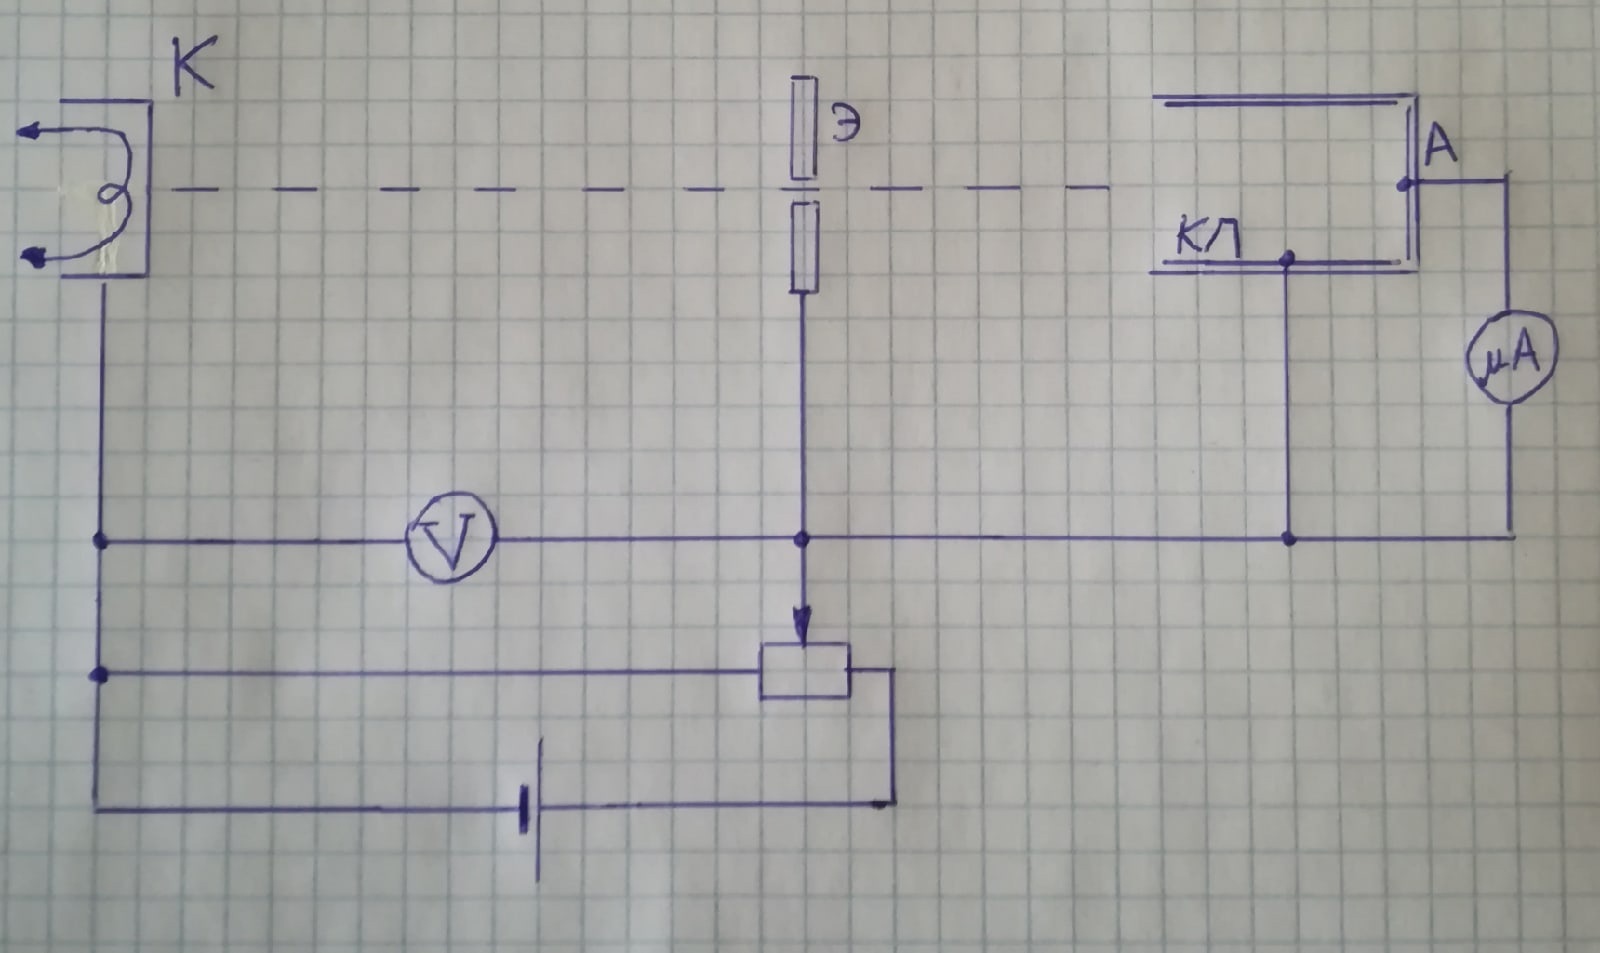 К
Э
А
КЛ
μА
V